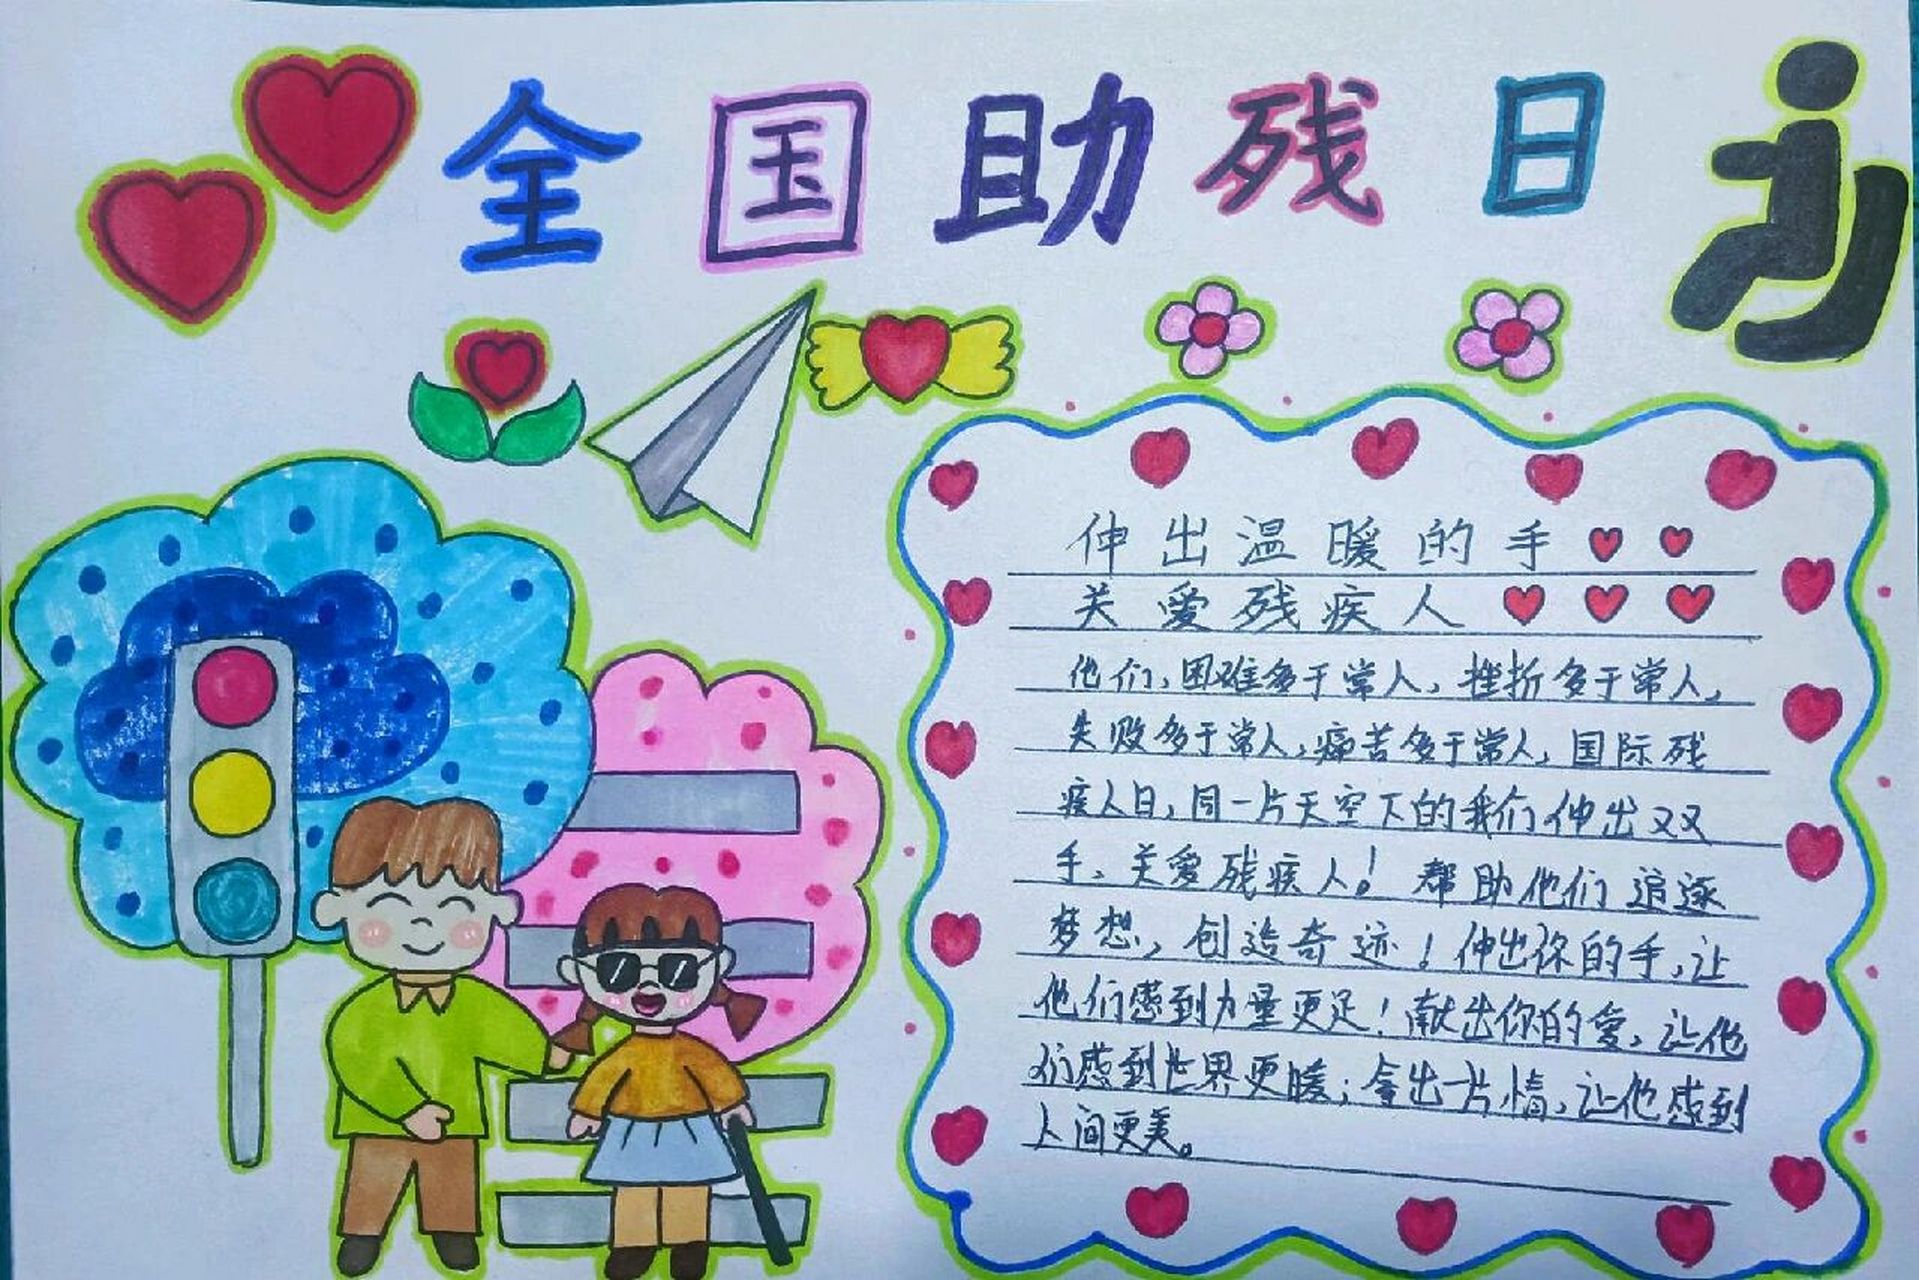 全国助残日
伸出温暖的手
关爱残疾人
他们，困难多于常人，挫折多于常人，
失败多于常人，痛苦多于常人，国际残
疾人日，同一片天空下的我们伸出双
手，关爱残疾人！帮助他们追逐
梦想，创造奇迹！伸出你的手，让
他们感到力量更足！献出你的爱，让他
们感到世界更暖；拿出一片情，让他感到
人间更美。